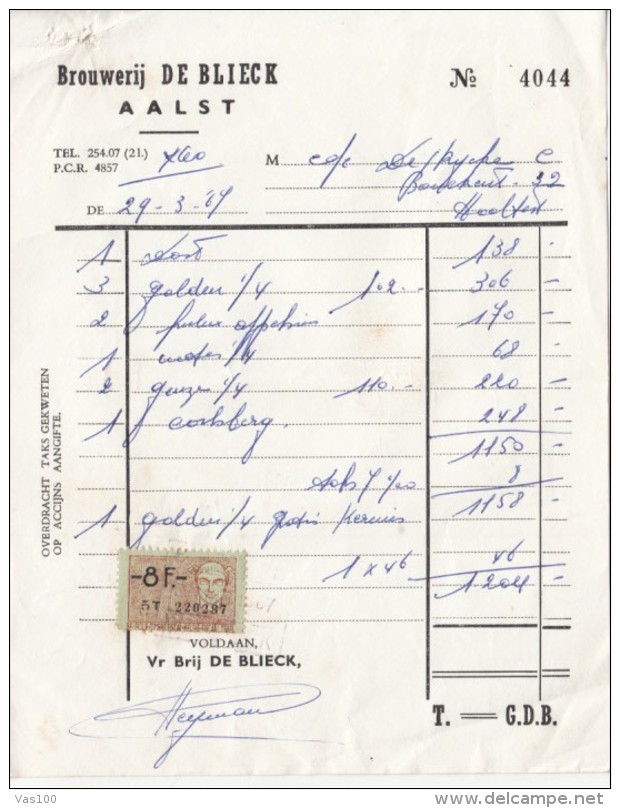 Brouwerij DE BLIECK
AALST
№ 4044
TEL. 254.07 (2 l.)
P.C.R. 4857
M c/c C
32
DE 29-3-'67
1 138 -
3 golden 1/4 102.- 306 -
2 170 -
1 1/4 68 -
2 1/4 110.- 220 -
1 248 -
1150 -
8
1158 -
1 golden 1/4 gratis Kermis
1 x 46 46
1204 -
OVERDRACHT TAKS GEKWETEN
OP ACCIJNS AANGIFTE.
-8F.-
5T 220287
VOLDAAN,
Vr Brij DE BLIECK,
T. = G.D.B.
Vas100
www.delcampe.net